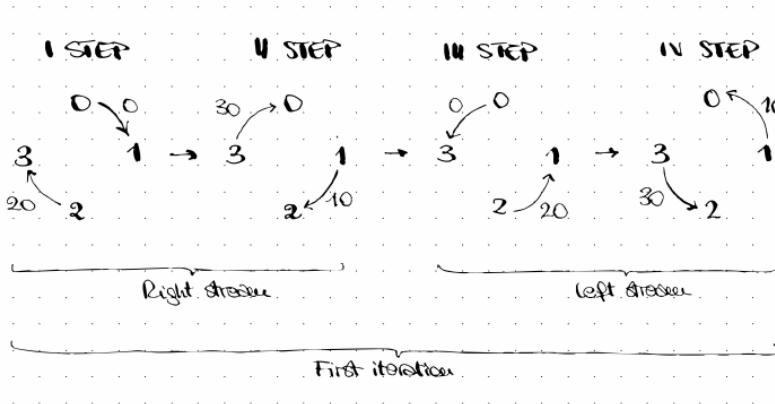 I STEP II STEP III STEP IV STEP
0 0 30 0 0 0 0 10
3 1 → 3 1 → 3 1 → 3 1
20 2 2 10 2 20 30 2
Right stream left stream
First iteration